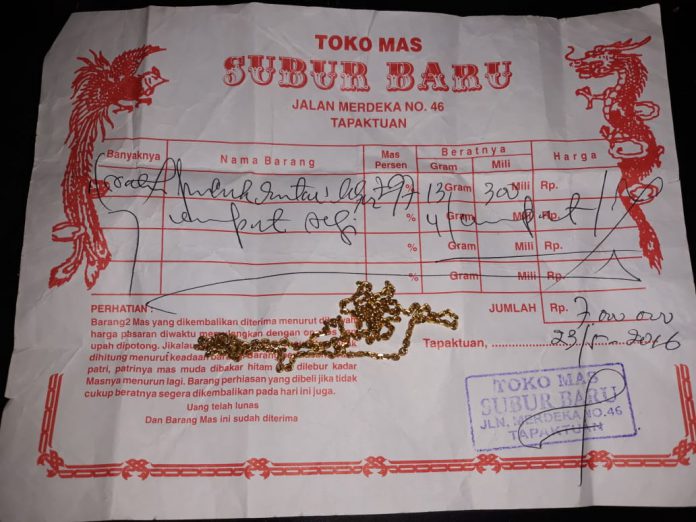 TOKO MAS
SUBUR BARU
JALAN MERDEKA NO. 46
TAPAKTUAN
Banyaknya Nama Barang Mas Persen Beratnya Gram Mili Harga
97 % 13 Gram 300 Mili Rp.
empat segi % 4/empat Gram Mili Rp.
% Gram Mili Rp.
% Gram Mili Rp.
JUMLAH Rp. 7000 000
Tapaktuan, 23 2016
PERHATIAN :
Barang2 Mas yang dikembalikan diterima menurut
harga pasaran diwaktu dengan
upah dipotong. Jikalau
dihitung menurut keadaan
patri, patrinya mas mudah dibakar hitam dilebur kadar
Masnya menurun lagi. Barang perhiasan yang dibeli jika tidak
cukup beratnya segera dikembalikan pada hari ini juga.
Uang telah lunas
Dan Barang Mas ini sudah diterima
TOKO MAS
SUBUR BARU
JLN. MERDEKA NO. 46
TAPAKTUAN